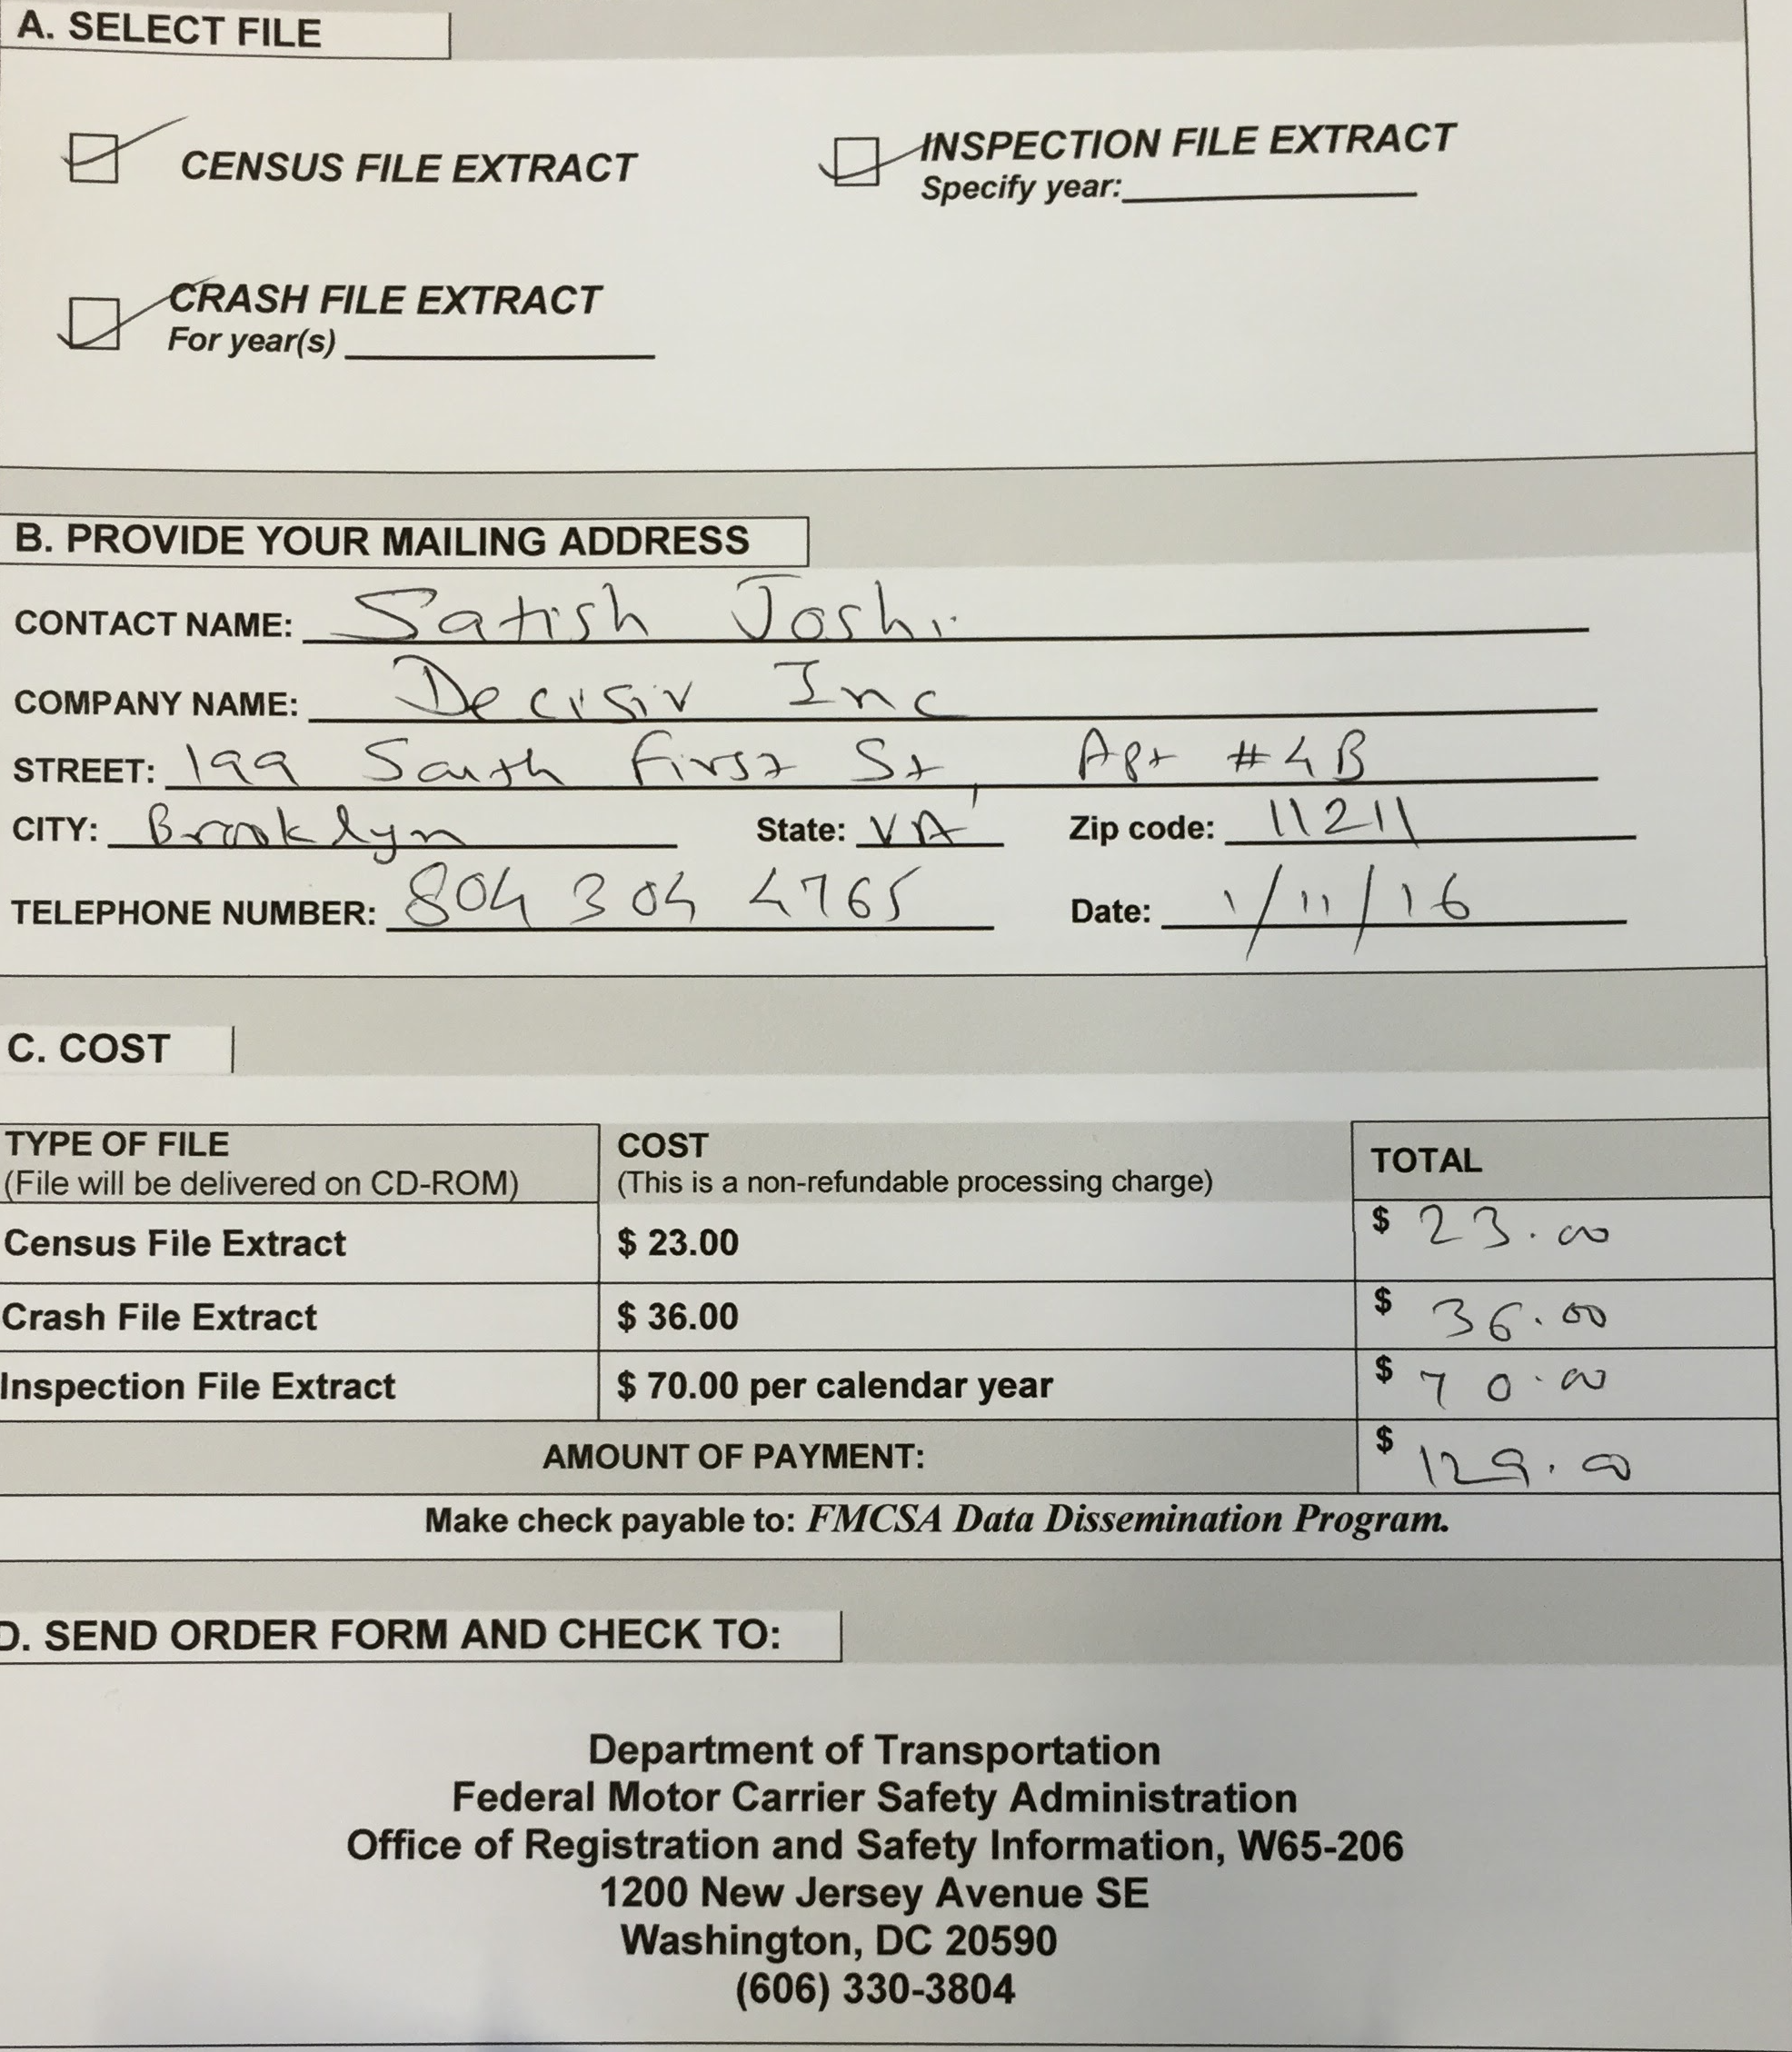 A. SELECT FILE
CENSUS FILE EXTRACT
INSPECTION FILE EXTRACT
Specify year:
CRASH FILE EXTRACT
For year(s)
B. PROVIDE YOUR MAILING ADDRESS
CONTACT NAME: Satish Joshi
COMPANY NAME: Decisiv Inc
STREET: 199 South First St, Apt #4B
CITY: Brooklyn State: VA Zip code: 11211
TELEPHONE NUMBER: 804 304 4765 Date: 1/11/16
C. COST
TYPE OF FILE COST TOTAL
(File will be delivered on CD-ROM) (This is a non-refundable processing charge)
Census File Extract $ 23.00 $ 23.00
Crash File Extract $ 36.00 $ 36.00
Inspection File Extract $ 70.00 per calendar year $ 70.00
AMOUNT OF PAYMENT: $ 129.00
Make check payable to: FMCSA Data Dissemination Program.
D. SEND ORDER FORM AND CHECK TO:
Department of Transportation
Federal Motor Carrier Safety Administration
Office of Registration and Safety Information, W65-206
1200 New Jersey Avenue SE
Washington, DC 20590
(606) 330-3804